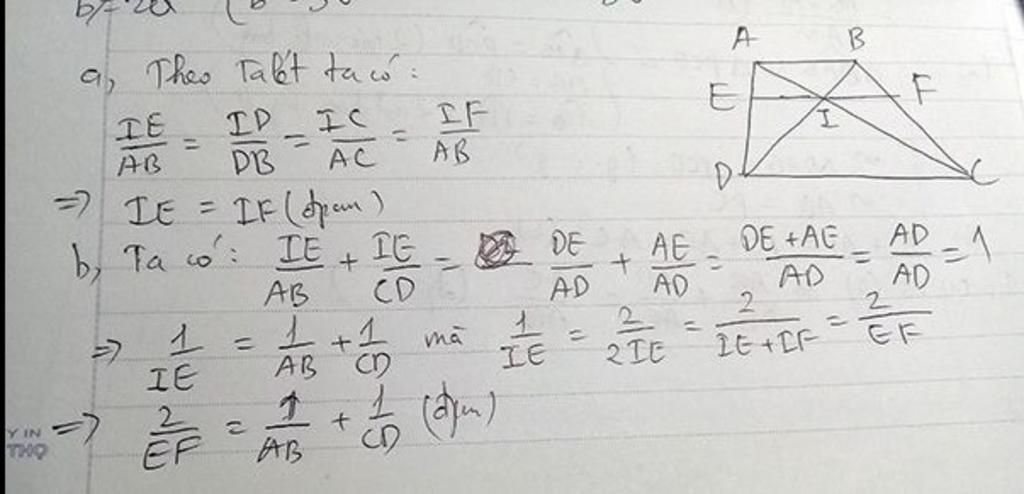 b/= 2a
a, Theo Talét ta có:
IE/AB = ID/DB = IC/AC = IF/AB
=> IE = IF (đpcm)
b, Ta có: IE/AB + IE/CD = DE/AD + AE/AD = DE+AE/AD = AD/AD = 1
=> 1/IE = 1/AB + 1/CD mà 1/IE = 2/2IE = 2/IE+IF = 2/EF
=> 2/EF = 1/AB + 1/CD (đpcm)
A B
E F
I
D C
Y IN
THỌ